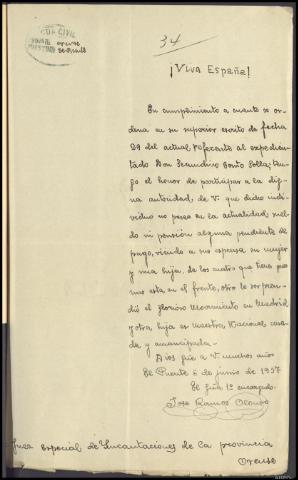 34
¡Viva España!
En cumplimiento a cuanto se or-
dena en su superior escrito de fecha
29 del actual, referente al expedien-
tado Don Secundino Couto Solla; ten-
go el honor de participar a la dig-
na autoridad, de V. que dicho indi-
viduo no posee en la actualidad, suel-
do ni pensión alguna pendiente de
pago, viviendo a sus expensas su mujer
y una hija, de los cuatro que tiene pues
uno esta en el frente, otro le sorpren-
dió el glorioso Movimiento en Madrid
y otra hija es Maestra Nacional casa-
da y emancipada.-
Dios gûe a V. muchos años
El Puente 5 de junio de 1937
El 1º encargado.
Jose Ramos Alonso
Juez especial de Incautaciones de la provincia
Orense